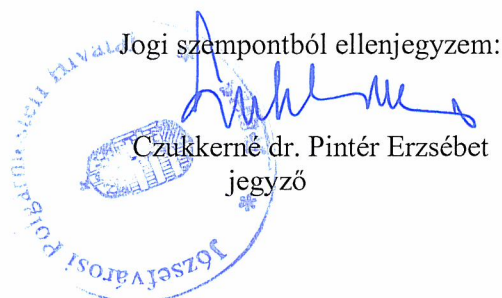 Jogi szempontból ellenjegyzem:
Czukkerné dr. Pintér Erzsébet
jegyző
Józsefvárosi Polgármesteri Hivatal